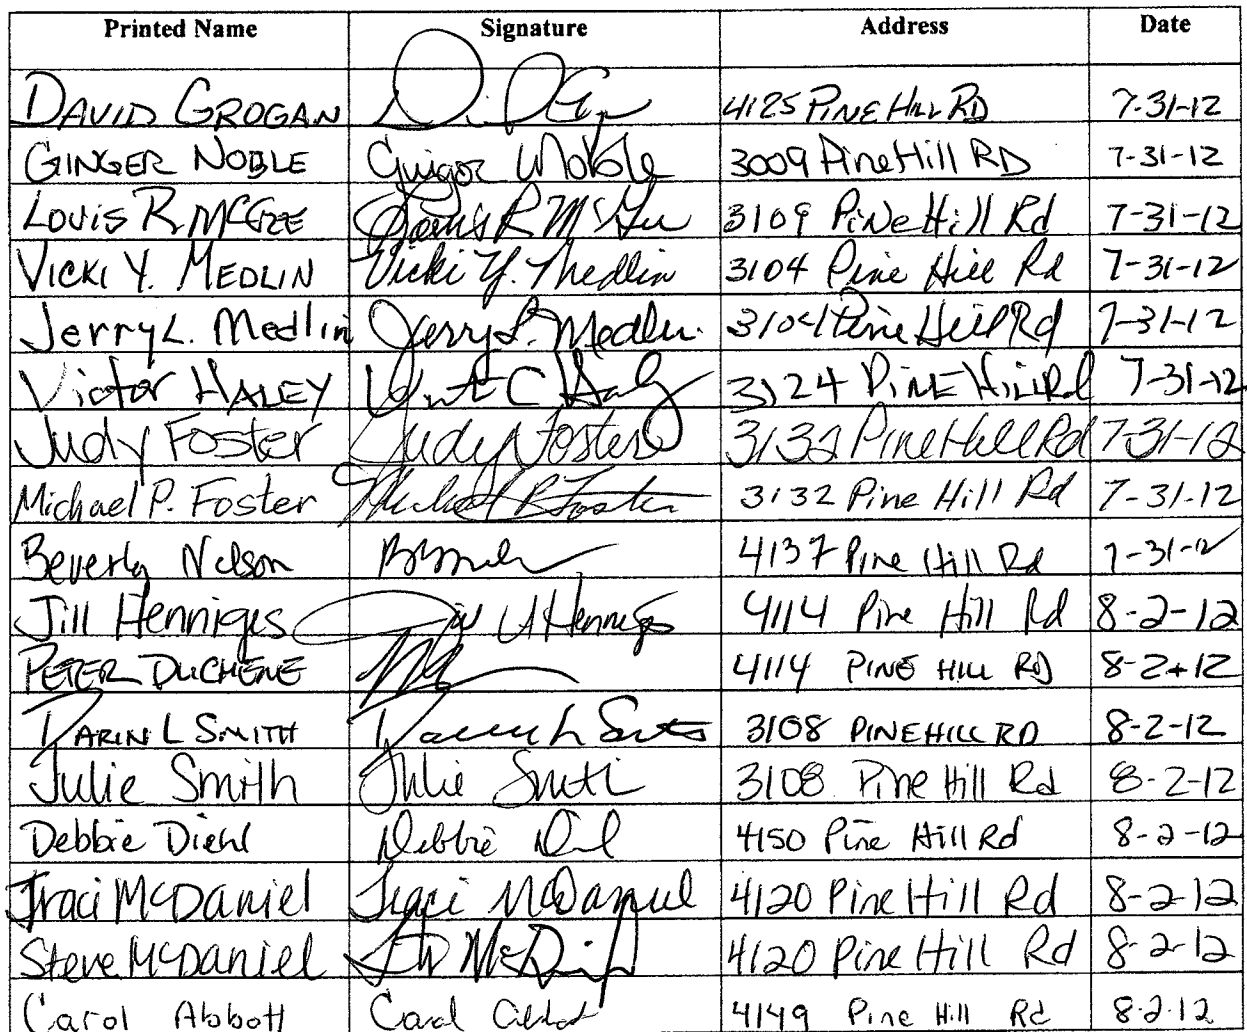 Printed Name Signature Address Date
DAVID GROGAN 4125 PINE HILL RD 7-31-12
GINGER NOBLE Ginger Noble 3009 Pine Hill RD 7-31-12
LOUIS R. McGEE Louis R McGee 3109 Pine Hill Rd 7-31-12
VICKI Y. MEDLIN Vicki Y. Medlin 3104 Pine Hill Rd 7-31-12
Jerry L. Medlin Jerry L. Medlin 3104 Pine Hill Rd 7-31-12
Victor HALEY 3124 PINE HILL Rd 7-31-12
Judy Foster Judy Foster 3132 Pine Hill Rd 7-31-12
Michael P. Foster Michael P. Foster 3132 Pine Hill Rd 7-31-12
Beverly Nelson 4137 Pine Hill Rd 7-31-12
Jill Henniges Henniges 4114 Pine Hill Rd 8-2-12
PETER DUCHENE 4114 PINE HILL RD 8-2-12
DARIN L SMITH Darin L Smith 3108 PINEHILL RD 8-2-12
Julie Smith Julie Smith 3108 Pine Hill Rd 8-2-12
Debbie Diehl Debbie Diehl 4150 Pine Hill Rd 8-2-12
Traci McDaniel Traci McDaniel 4120 Pine Hill Rd 8-2-12
Steve McDaniel 4120 Pine Hill Rd 8-2-12
Carol Abbott Carol Abbott 4149 Pine Hill Rd 8-2-12